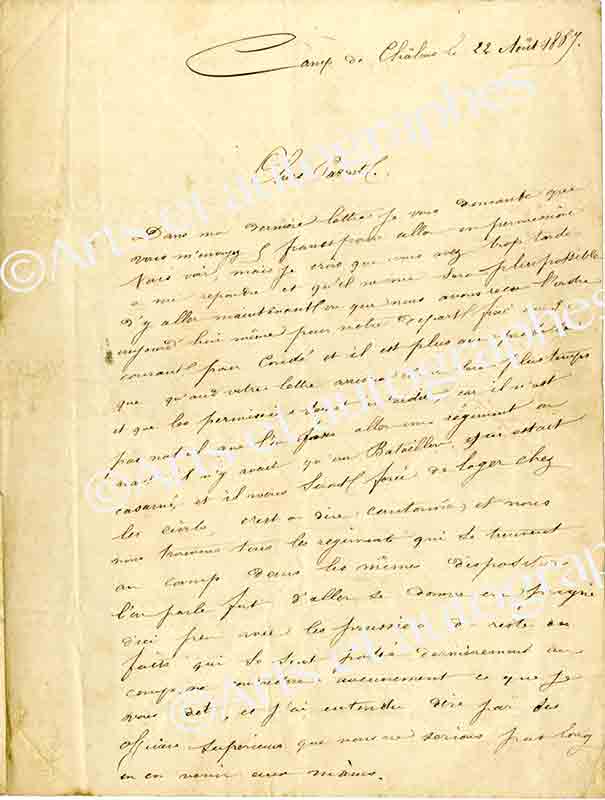 Camp de Châlons le 22 Août 1887.
Chers Parents.
Dans ma dernière lettre je vous demande que
vous m'envoyez 5 francs pour aller en permission
vous voir, mais je crois que vous serez trop tarde
a me repondre et qu'il ne me sera plus possible
d'y aller maintenant vu que nous avons reçu l'ordre
aujourd'hui même pour notre départ
courant pour Condé et il est plus que
que quand votre lettre arrivera
et que les permissions
pas que l'on fasse aller un régiment ou
il n'y avait qu'un Bataillon et qui estait
caserné, et il nous serait forcé de loger chez
les civils, c'est a dire cantonné, et nous
nous trouvons tous les régiments qui se trouvent
au camp dans les mêmes dispositions
l'on parle fort d'aller se donner en peigne
d'ici peu avec les prussiens du reste les
faits qui se sont passés dernièrement au
camp, ne aucunement ce que je
vous dit, et j'ai entendu dire par des
officiers supérieurs que nous ne serions pas long
en en venir aux mains.
©Arts et autographes
©Arts et autographes
©Arts et autographes